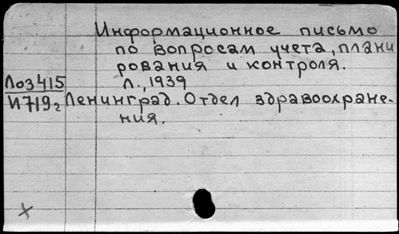 Информационное письмо
по вопросам учета, плани
рования и контроля.
Л., 1939
Ло3415
И719г
Ленинград. Отдел здравоохране-
ния.